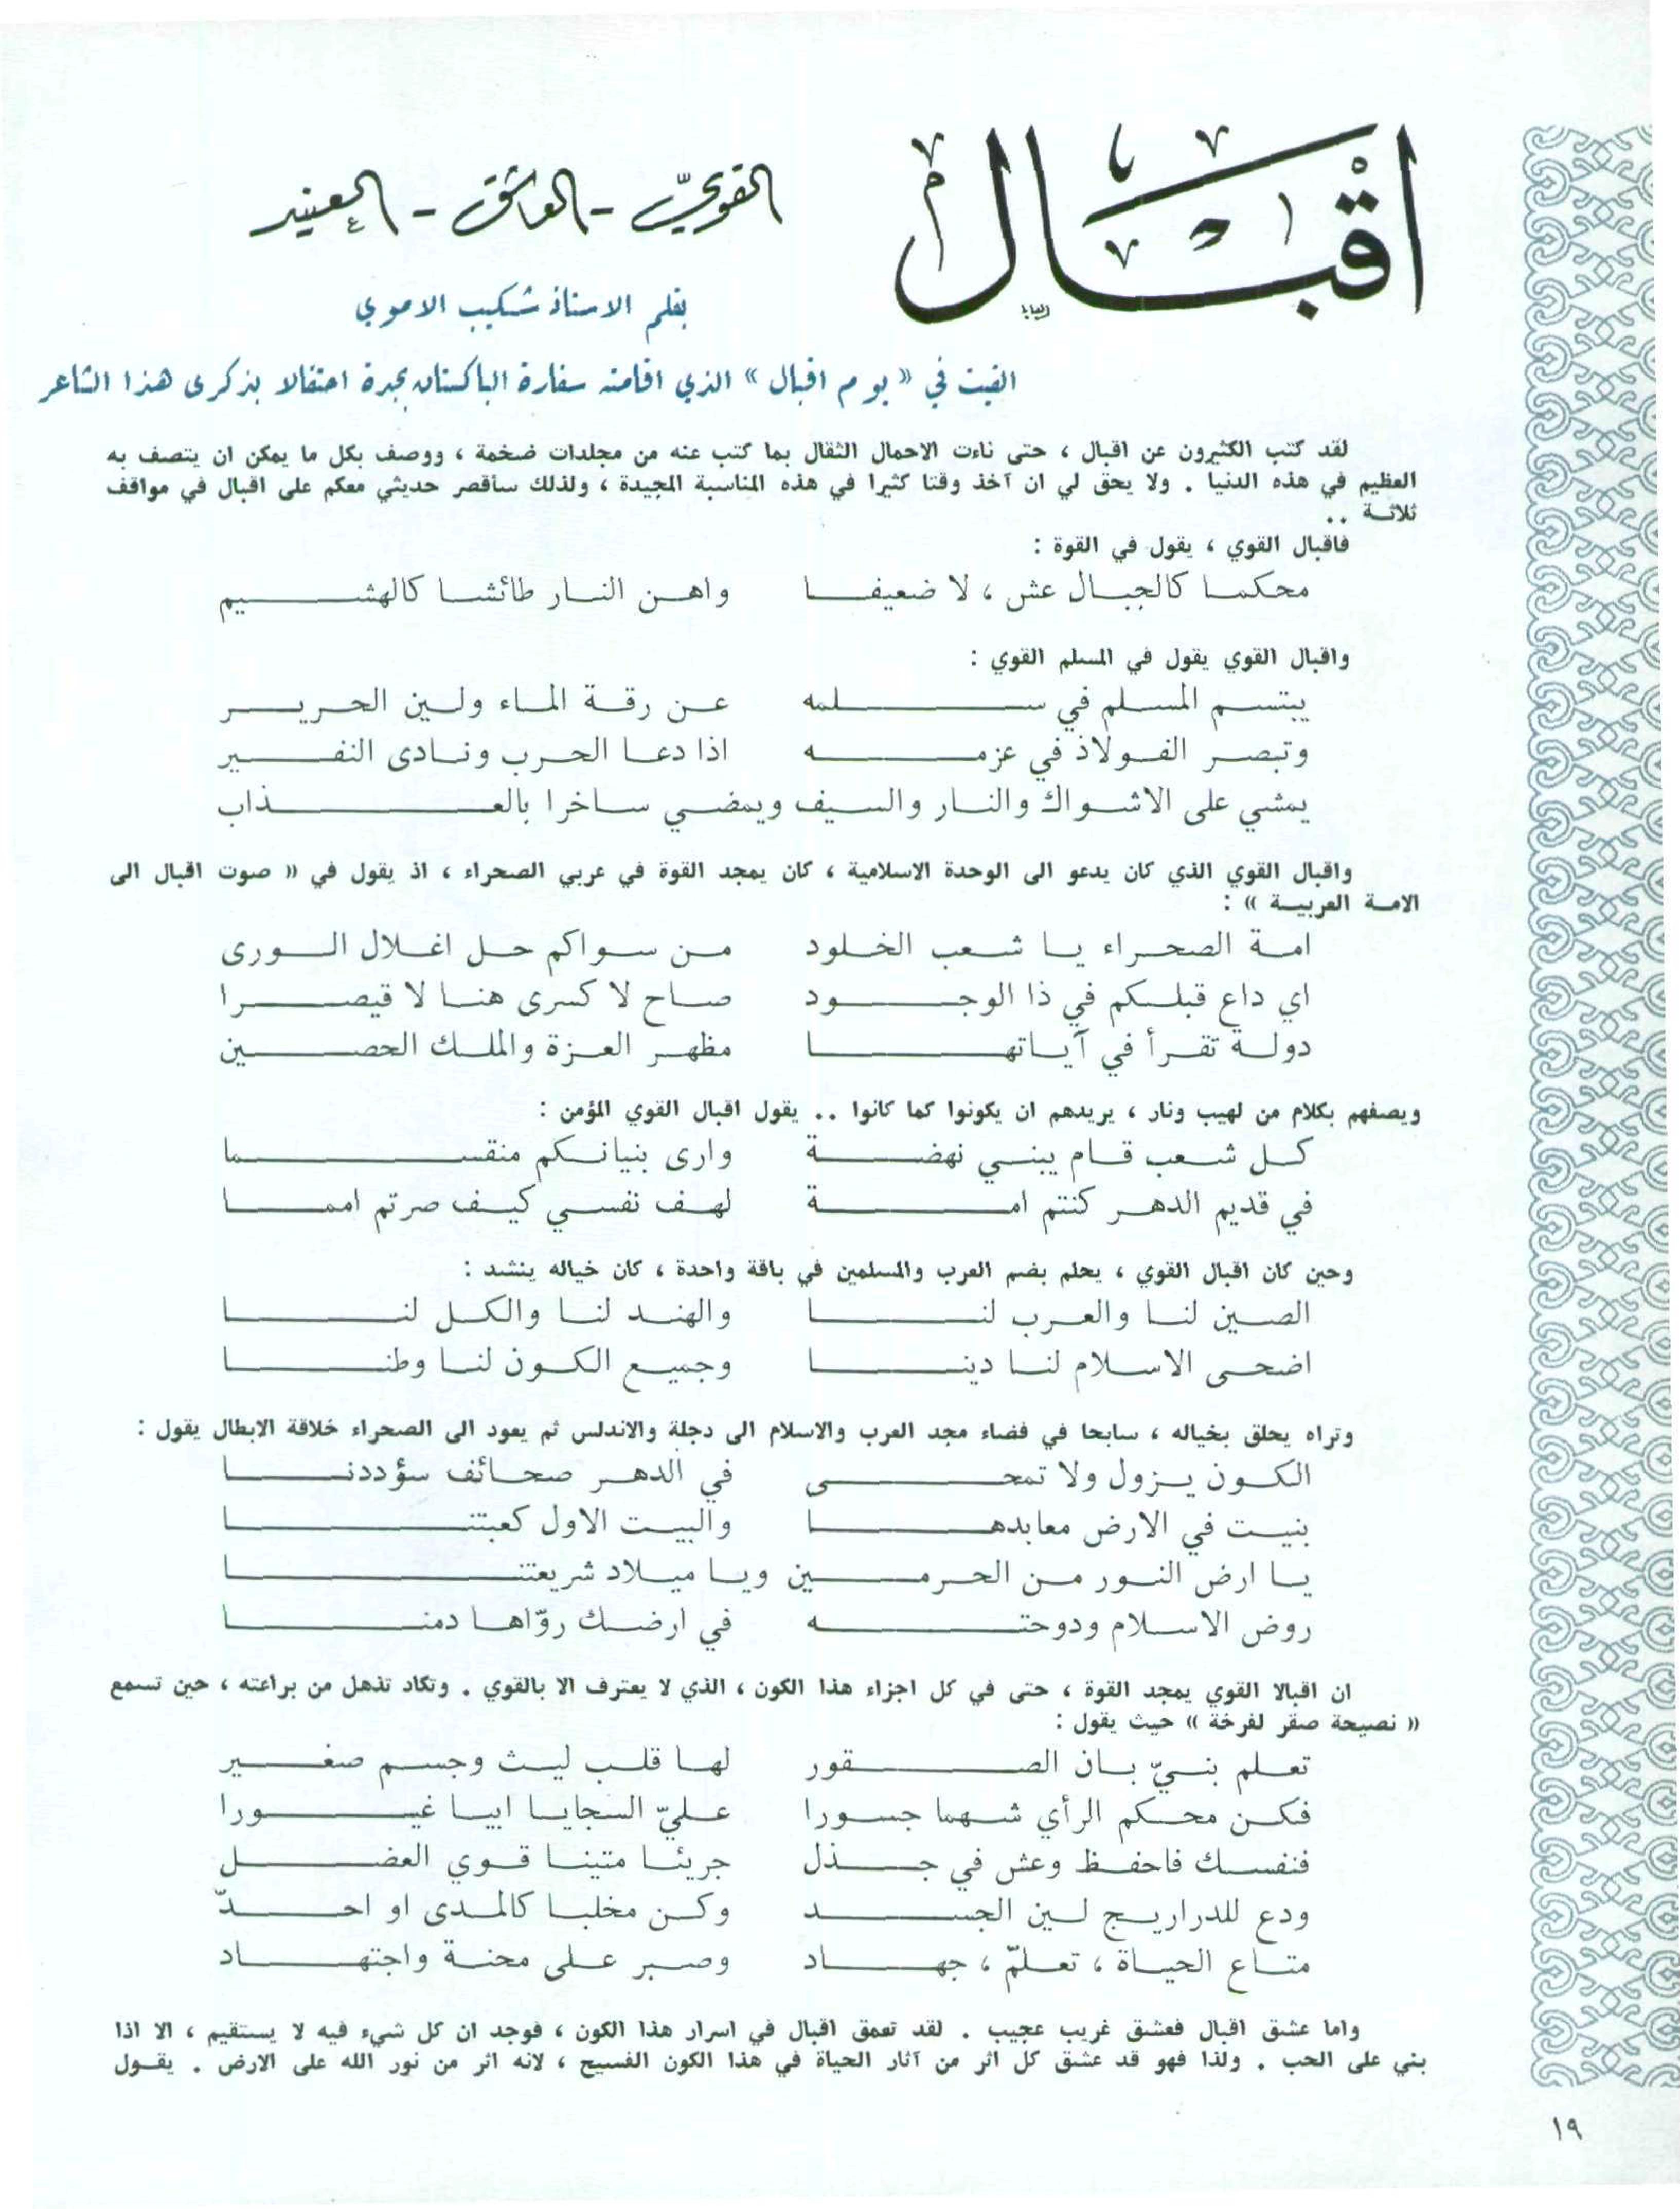 اقبال
القويّ - العاشق - العنيد
بقلم الاستاذ شكيب الاموي
القيت في « يوم اقبال » الذي اقامته سفارة الباكستان بجدة احتفالا بذكرى هذا الشاعر
لقد كتب الكثيرون عن اقبال ، حتى ناءت الاحمال الثقال بما كتب عنه من مجلدات ضخمة ، ووصف بكل ما يمكن ان يتصف به
العظيم في هذه الدنيا . ولا يحق لي ان آخذ وقتا كثيرا في هذه المناسبة المجيدة ، ولذلك سأقصر حديثي معكم على اقبال في مواقف
ثلاثة ..
فاقبال القوي ، يقول في القوة :
محكما كالجبال عش ، لا ضعيفا واهن النار طائشا كالهشيم
واقبال القوي يقول في المسلم القوي :
يبتسم المسلم في سلمه عن رقة الماء ولين الحرير
وتبصر الفولاذ في عزمه اذا دعا الحرب ونادى النفير
يمشي على الاشواك والنار والسيف ويمضي ساخرا بالعذاب
واقبال القوي الذي كان يدعو الى الوحدة الاسلامية ، كان يمجد القوة في عربي الصحراء ، اذ يقول في « صوت اقبال الى
الامة العربية » :
امة الصحراء يا شعب الخلود من سواكم حل اغلال الورى
اي داع قبلكم في ذا الوجود صاح لا كسرى هنا لا قيصرا
دولة تقرأ في آياتها مظهر العزة والملك الحصين
ويصفهم بكلام من لهيب ونار ، يريدهم ان يكونوا كما كانوا .. يقول اقبال القوي المؤمن :
كل شعب قام يبني نهضة وارى بنيانكم منقسما
في قديم الدهر كنتم امة لهف نفسي كيف صرتم امما
وحين كان اقبال القوي ، يحلم بضم العرب والمسلمين في باقة واحدة ، كان خياله ينشد :
الصين لنا والعرب لنا والهند لنا والكل لنا
اضحى الاسلام لنا دينا وجميع الكون لنا وطنا
وتراه يحلق بخياله ، سابحا في فضاء مجد العرب والاسلام الى دجلة والاندلس ثم يعود الى الصحراء خلاقة الابطال يقول :
الكون يزول ولا تمحى في الدهر صحائف سؤددنا
بنيت في الارض معابدها والبيت الاول كعبتنا
يا ارض النور من الحرمين ويا ميلاد شريعتنا
روض الاسلام ودوحته في ارضك روّاها دمنا
ان اقبالا القوي يمجد القوة ، حتى في كل اجزاء هذا الكون ، الذي لا يعترف الا بالقوي . وتكاد تذهل من براعته ، حين تسمع
« نصيحة صقر لفرخة » حيث يقول :
تعلم بنيّ بان الصقور لها قلب ليث وجسم صغير
فكن محكم الرأي شهما جسورا عليّ السجايا ابيا غيورا
فنفسك فاحفظ وعش في جذل جريئا متينا قوي العضل
ودع للدراريج لين الجسد وكن مخلبا كالمدى او احدّ
متاع الحياة ، تعلمّ ، جهاد وصبر على محنة واجتهاد
واما عشق اقبال فعشق غريب عجيب . لقد تعمق اقبال في اسرار هذا الكون ، فوجد ان كل شيء فيه لا يستقيم ، الا اذا
بني على الحب . ولذا فهو قد عشق كل اثر من آثار الحياة في هذا الكون الفسيح ، لانه اثر من نور الله على الارض . يقول
١٩